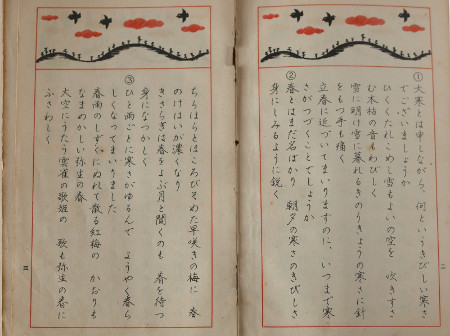 ①大寒とは申しながら、何というきびしい寒さ
でございましょうか
ひくくたれこめし雪もよいの空を 吹きすさ
む木枯の音もわびしく
雪に明け雪に暮れるきのうきょうの寒さに針
をもつ手も痛く
立春に近づいてまいりますのに、いつまで寒
さがつづくことでしょうか
②春とはまだ名ばかり 朝夕の寒さのきびしさ
身にしみるように鋭く
二
ちらほらとほころびそめた早咲きの梅に 春
のけはいが濃くなり
きさらぎは春をよぶ月と聞くのも 春を待つ
身になつかしく
③ひと雨ごとに寒さがゆるんで ようやく春ら
しくなってまいりました
春雨のしずくにぬれて散る紅梅の かおりも
なまめかしい弥生の春
大空にうたう雲雀の歌姫の 歌も弥生の春に
ふさわしく
三